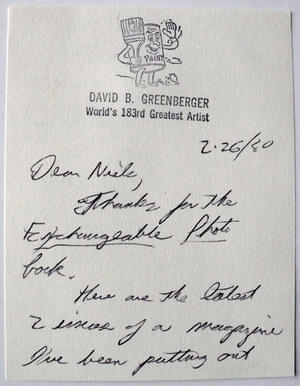 PAINT
DAVID B. GREENBERGER
World's 183rd Greatest Artist
2-26/80
Dear Nick,
Thanks for the
Exchangeable Photo
book.
Here are the latest
2 issues of a magazine
I've been putting out